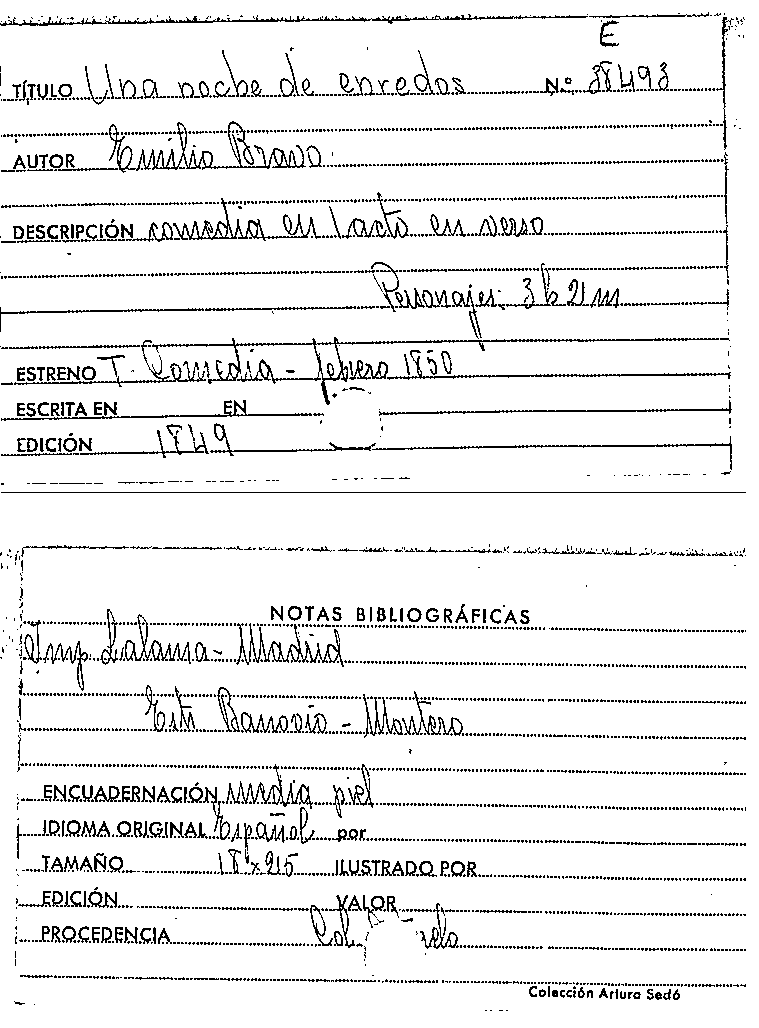 E
TÍTULO Una noche de enredos N.º 38493
AUTOR Emilio Bravo.
DESCRIPCIÓN comedia en 1 acto en verso
Personajes: 3 h 2 m
ESTRENO T. Comedia - febrero 1850
ESCRITA EN EN
EDICIÓN 1849
NOTAS BIBLIOGRÁFICAS
Imp Lalama - Madrid
- Montero
ENCUADERNACIÓN media piel
IDIOMA ORIGINAL Español por
TAMAÑO ILUSTRADO POR
EDICIÓN VALOR
PROCEDENCIA
Colección Arturo Sedó